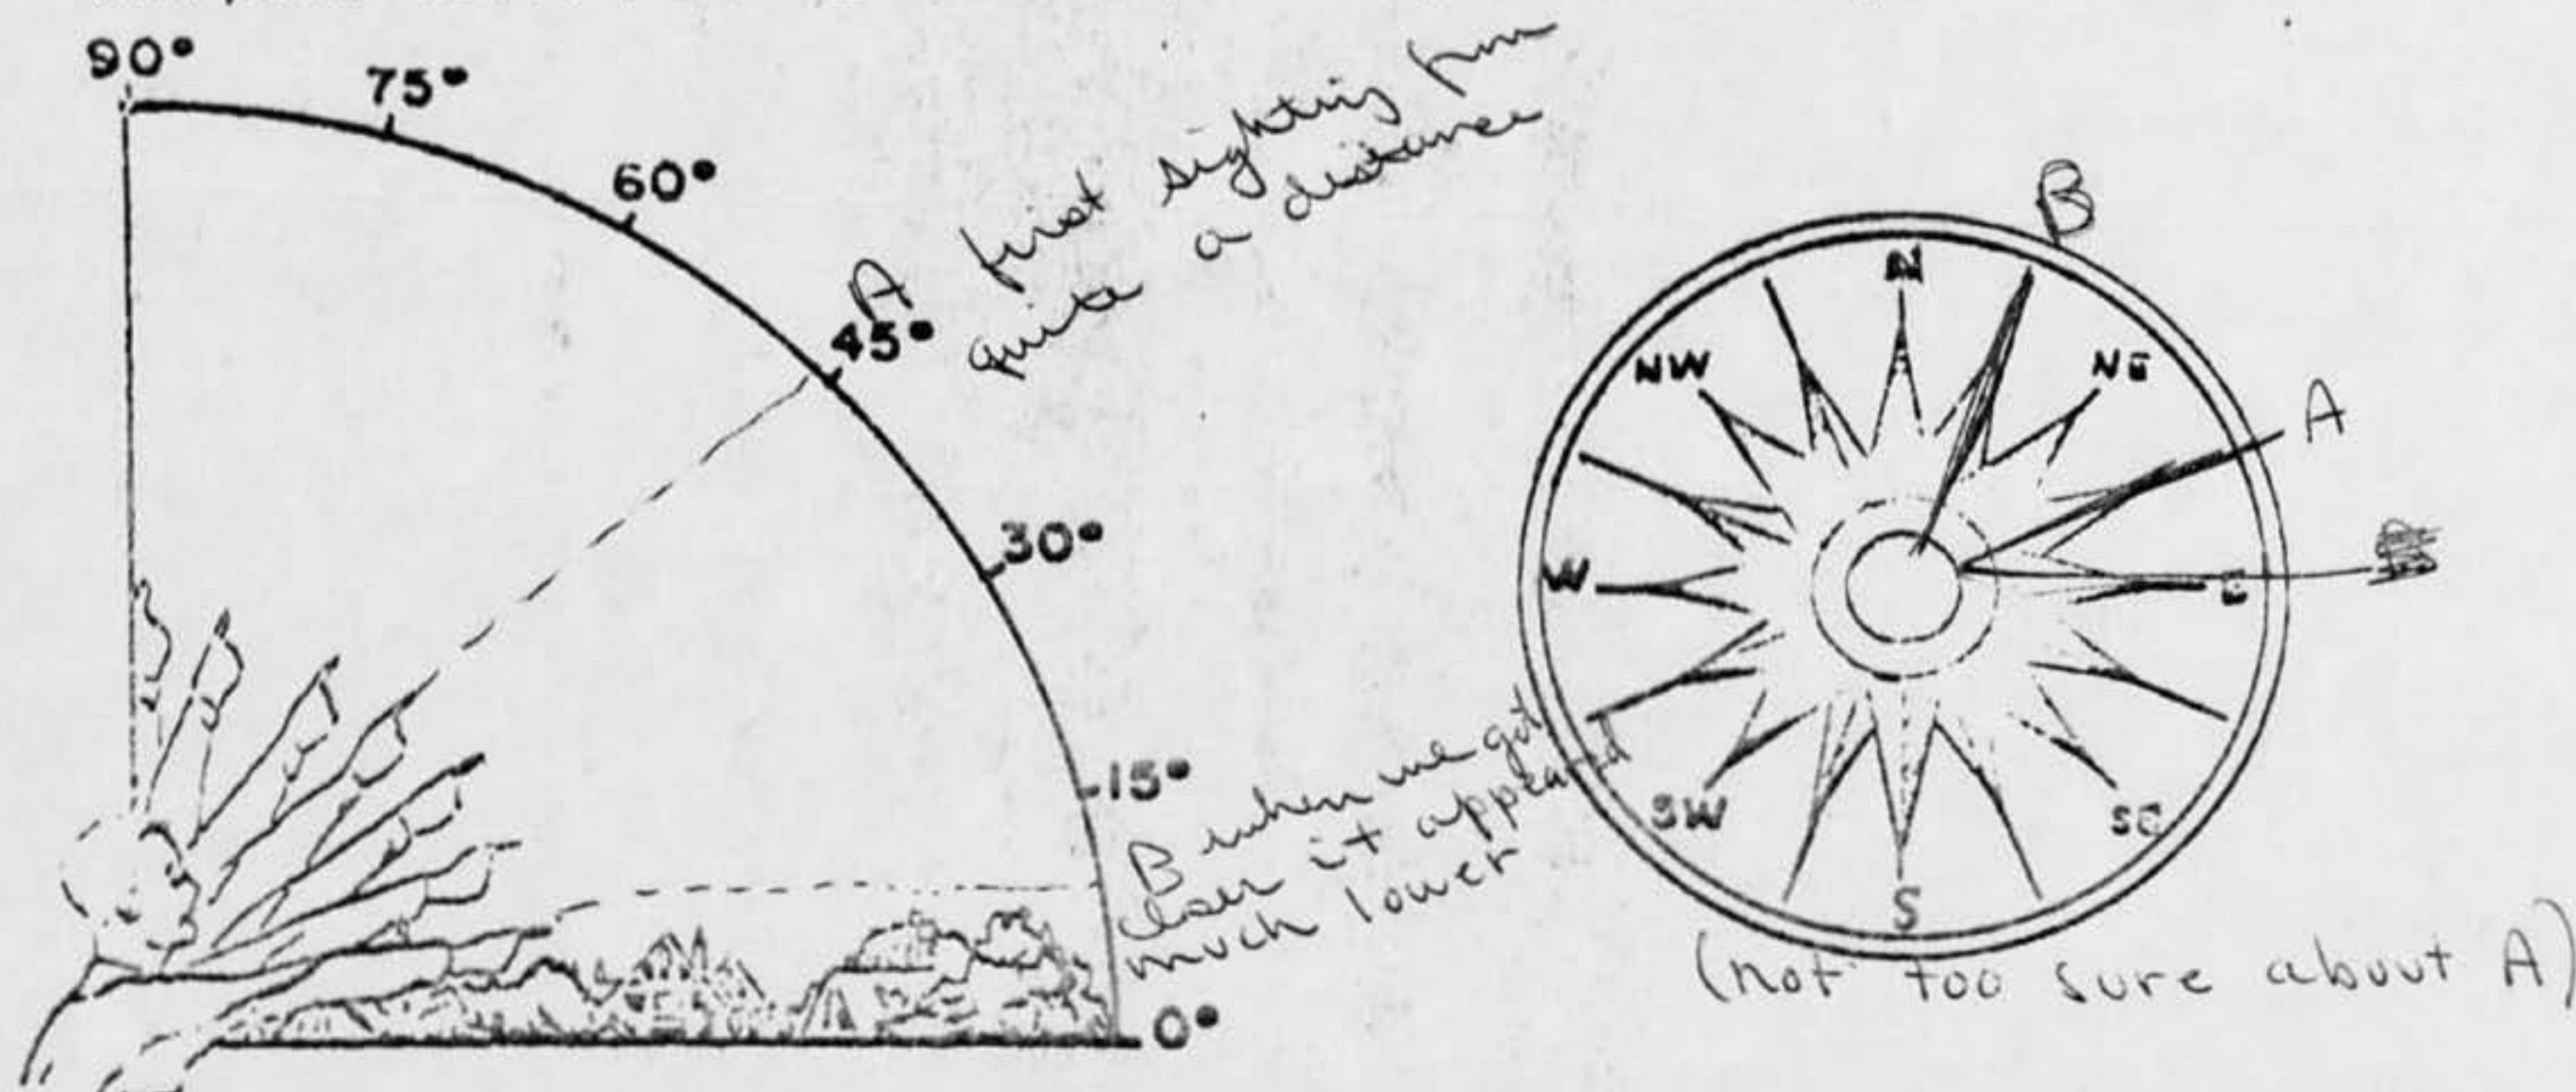 90°
75°
60°
A first sighting from
quite a distance
45°
30°
15°
B when we got
closer it appeared
much lower
0°
B
N
NW
NE
A
W
E
SW
SE
S
(not too sure about A)